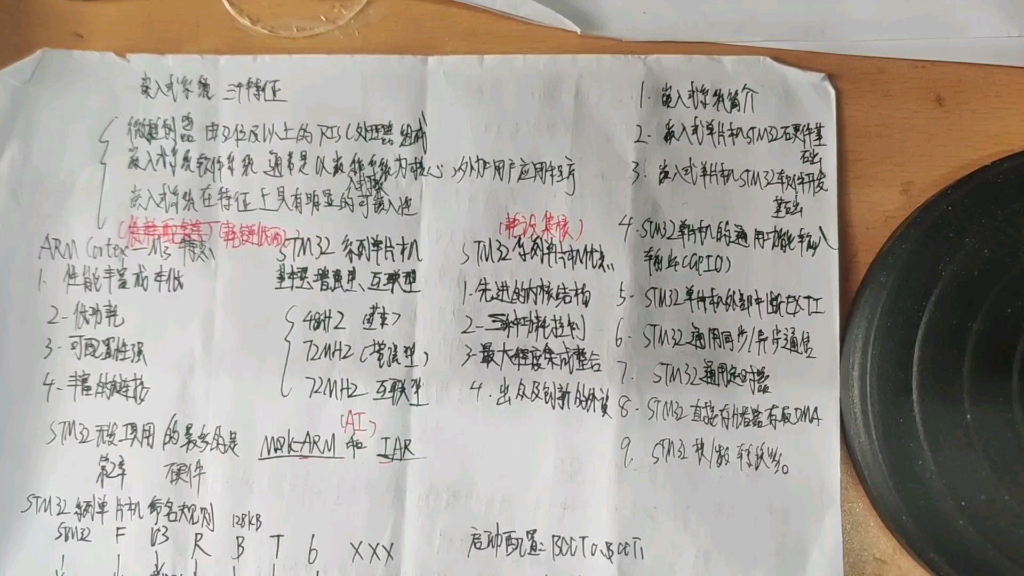 嵌入式系统 三个特征
微控制器 由32位及以上的RISC处理器组成
嵌入式系统软件系统 通常是以嵌入式系统为核心 外加用户应用程序
嵌入式系统在特征上具有明显的可嵌入性
ARM Cortex-M3 特点
1. 性能丰富成本低
2- 低功耗
3- 可配置性强
4- 丰富的链接
STM32 系列单片机
基本型、增强型、互联型
48HZ
72MHZ (增强型)
72MHZ 互联型
STM32系列单片机优点
1.先进的内核结构
2-三种功耗控制
3-最大程度集成整合
4. 出众及创新的外设
STM32 开发 用的最多的是
(AI)
MDK-ARM 和 IAR
硬件
STM32系列单片机命名规则
STM32 F 103 R B T 6 XXX
128KB
启动配置: BOOT0、BOOT1
1. 嵌入式系统简介
2- 嵌入式单片机STM32硬件基础
3. 嵌入式单片机STM32软件开发基础
4 STM32单片机的通用功能输入输出(GPIO)
5- STM32单片机外部中断EXTI
6- STM32通用同步/异步通信
7. STM32通用定时器
8- STM32直接存储器存取DMA
9. STM32模/数转换器。